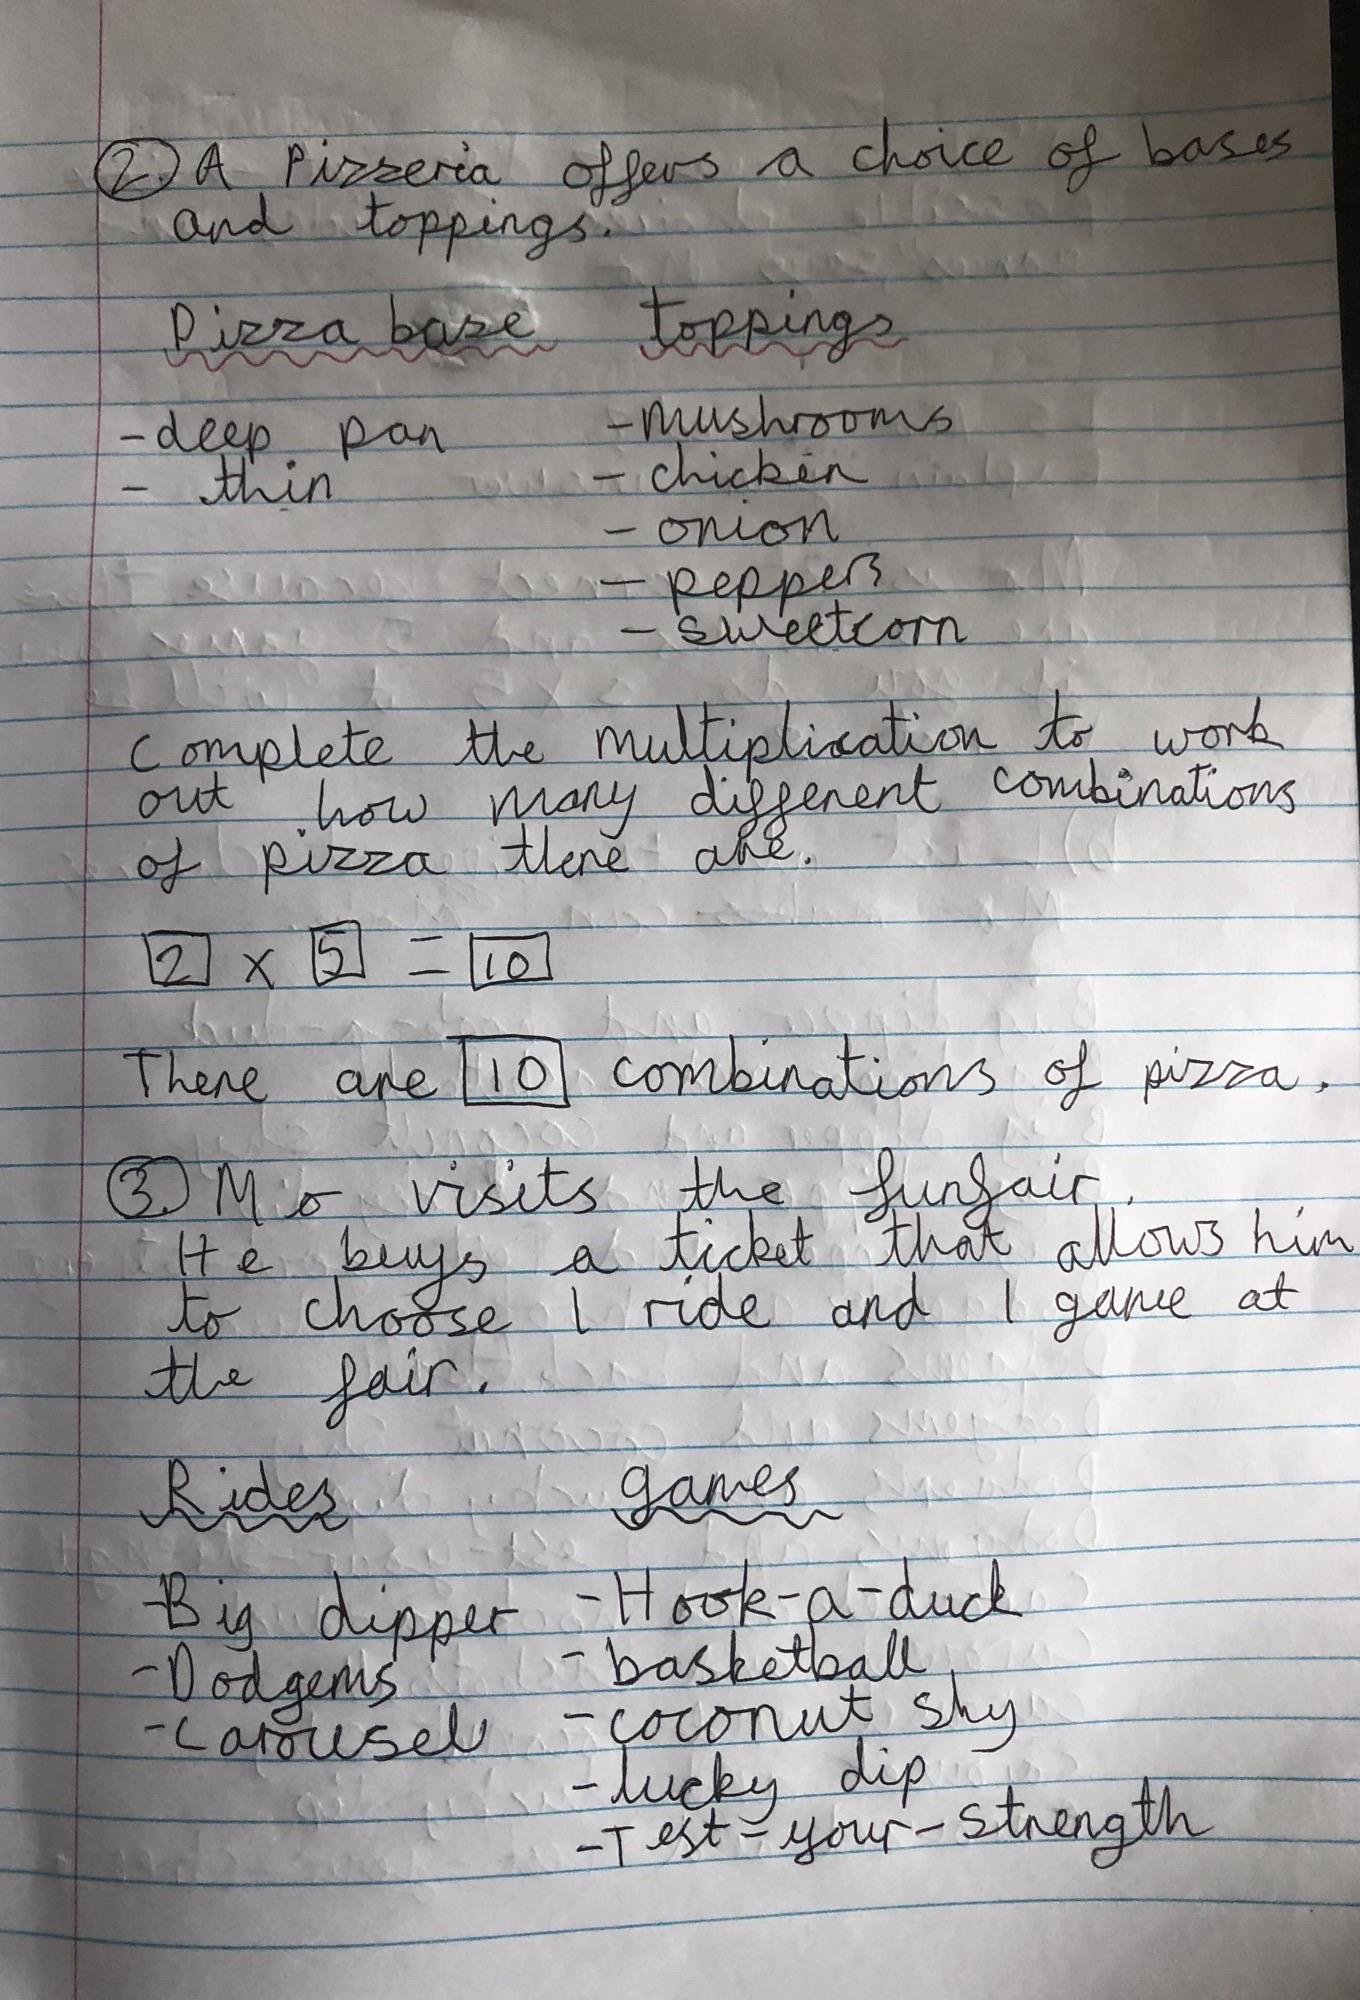 2. A Pizzeria offers a choice of bases
and toppings.
Pizza base toppings
- deep pan - mushrooms
- thin - chicken
- onion
- peppers
- sweetcorn
Complete the multiplication to work
out how many different combinations
of pizza there are.
2 x 5 = 10
There are 10 combinations of pizza.
3. Mo visits the funfair.
He buys a ticket that allows him
to choose 1 ride and 1 game at
the fair.
Rides games
- Big dipper - Hook-a-duck
- Dodgems - basketball
- Carousel - coconut shy
- lucky dip
- Test-your-strength